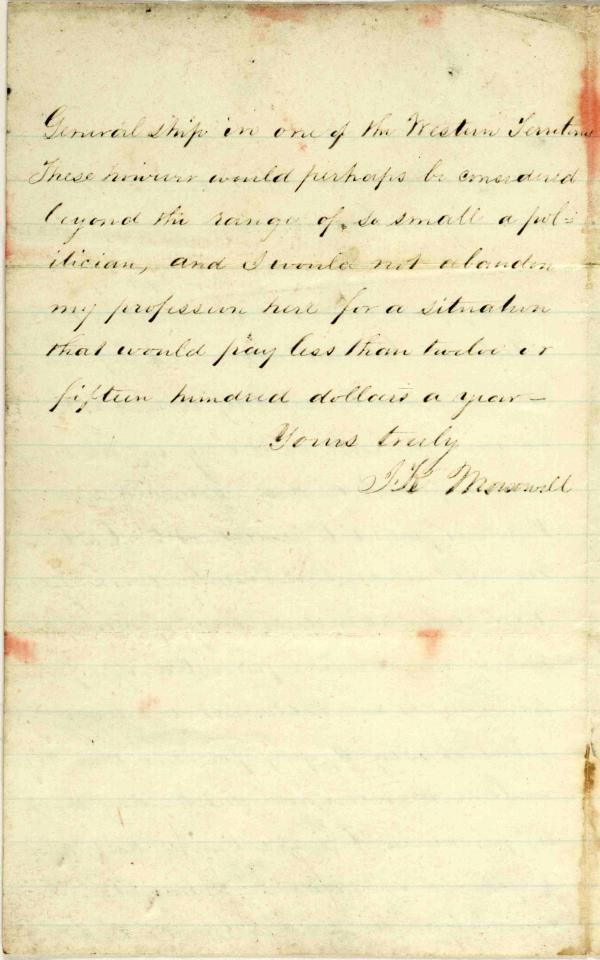 General ship in one of the Western Territories
These however would perhaps be considered
beyond the range of so small a pol=
itician, and I would not abandon
my profession here for a situation
that would pay less than twelve or
fifteen hundred dollars a year—
Yours truly